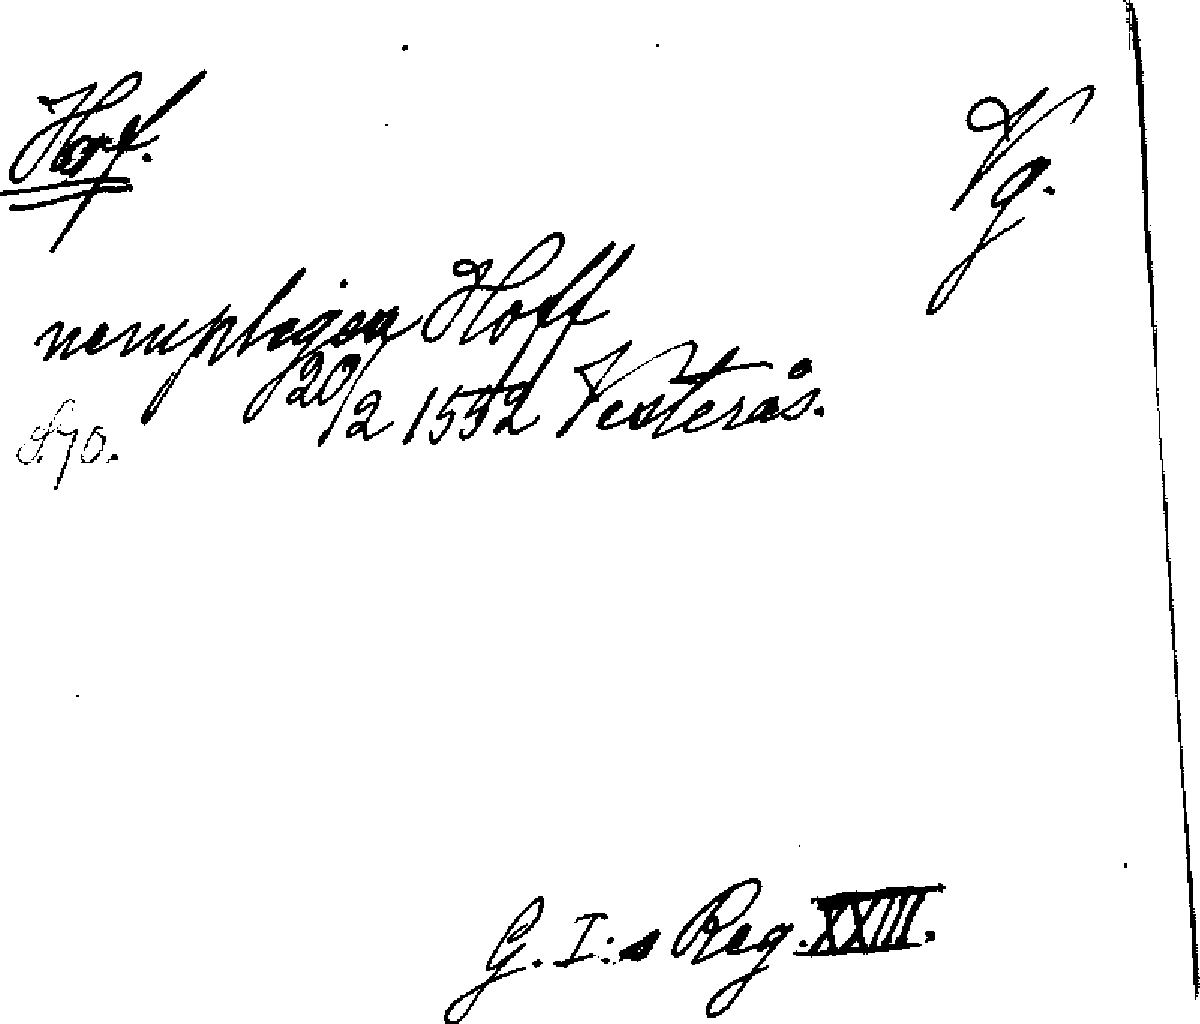 Hof.
Vg.
nemplegen Hoff
20/2 1552 Vesterås.
S. 70.
G. I:s Reg. XXIII.